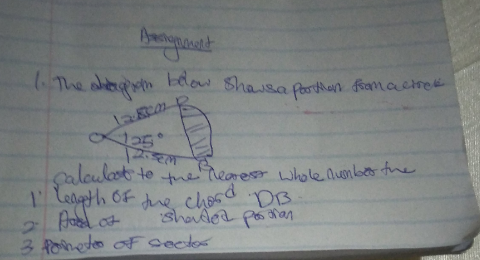 Assignment
1. The diagram below shows a portion from a circle
12.5cm
O 125°
12.5cm
B
calculate to the nearest whole number the
1. Length of the chord DB.
2 Area of shaded portion
3. Perimeter of sector